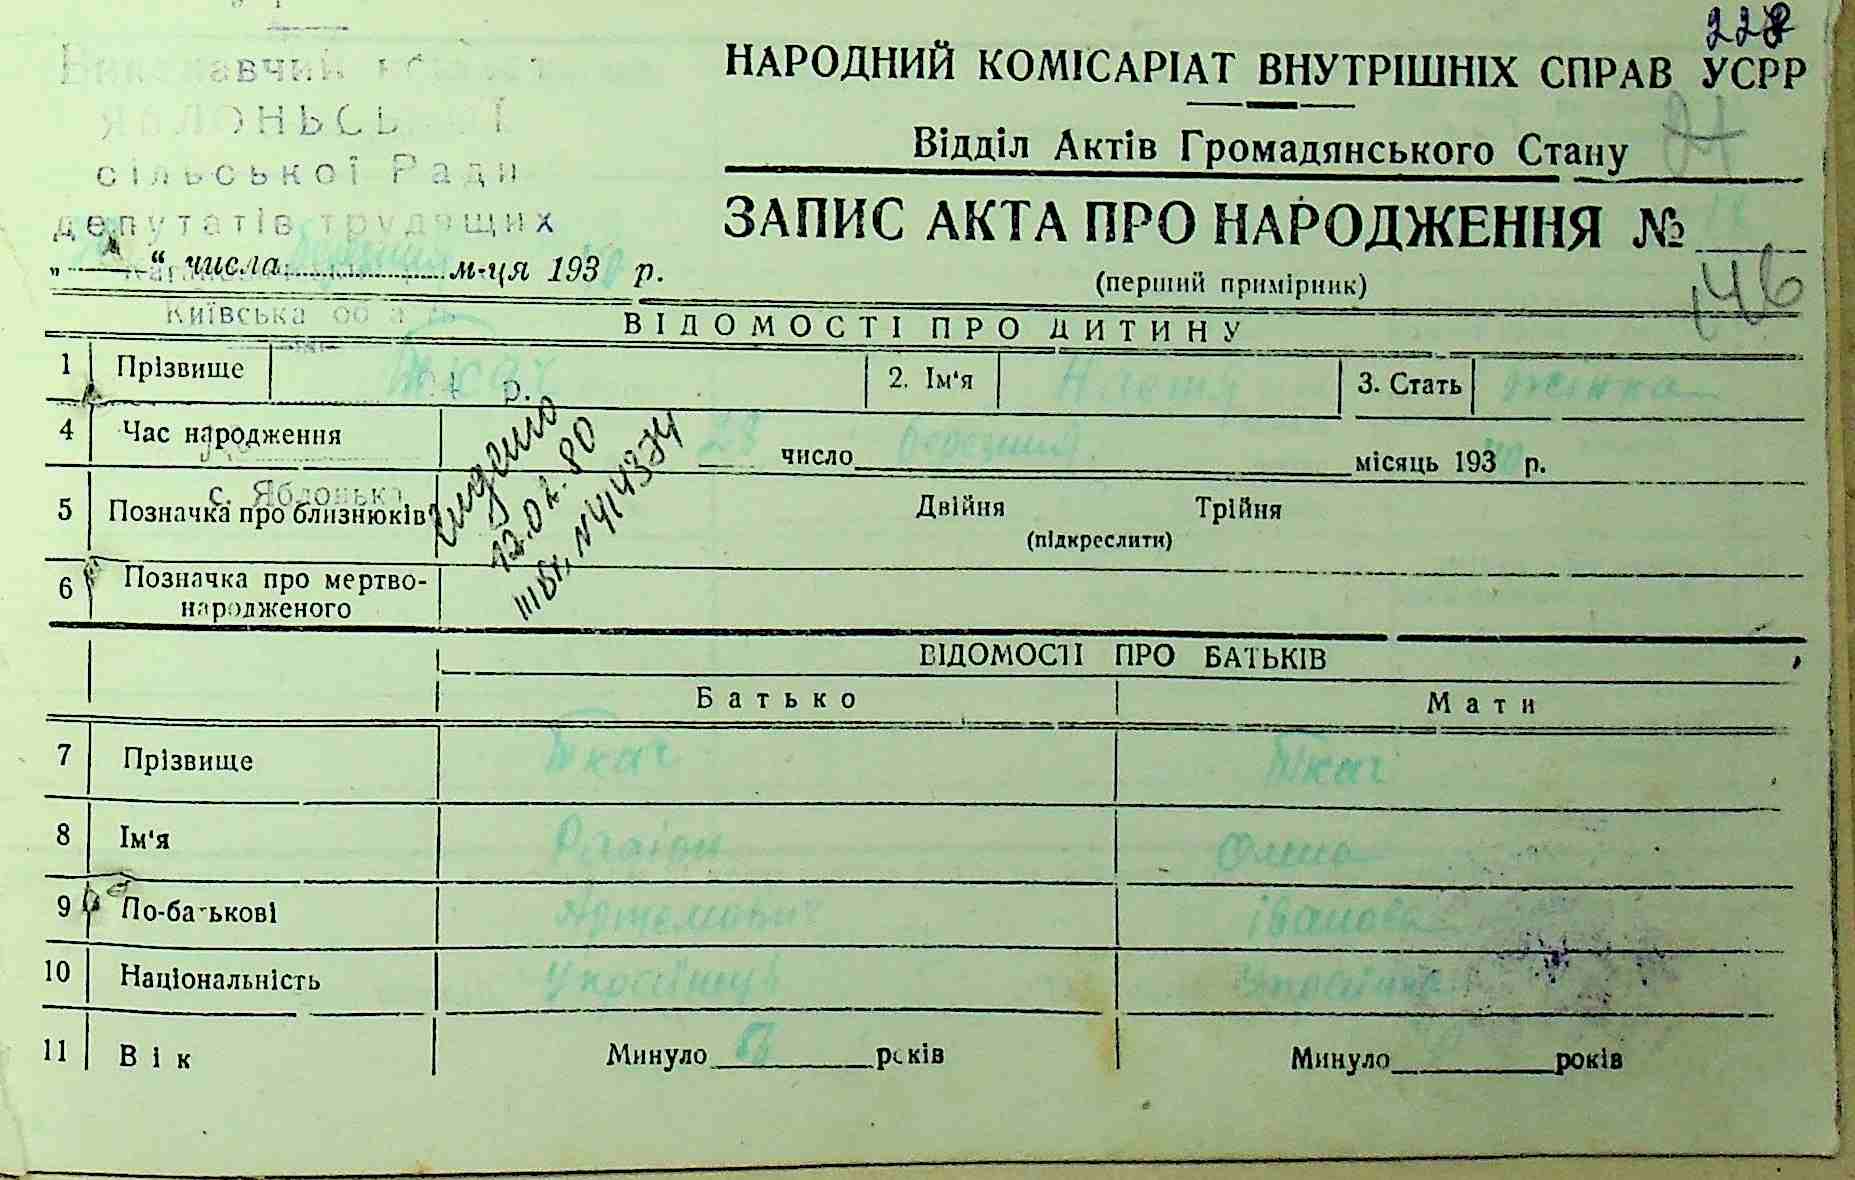 228
НАРОДНИЙ КОМІСАРІАТ ВНУТРІШНІХ СПРАВ УСРР
Відділ Актів Громадянського Стану
ЗАПИС АКТА ПРО НАРОДЖЕННЯ №
(перший примірник)
146
сільської Ради
депутатів трудящих
Київська
„ “ числа березня м-ця 193 р.
ВІДОМОСТІ ПРО ДИТИНУ
1 Прізвище Ткач 2. Ім'я Настя 3. Стать жінка
4 Час народження 28 число березня місяць 193 р.
с. Яблонька
5 Позначка про близнюків Двійня Трійня
(підкреслити)
12.02.80
№414374
6 Позначка про мертво-
народженого
ВІДОМОСТІ ПРО БАТЬКІВ
Батько Мати
7 Прізвище Ткач Ткач
8 Ім'я
9 По-батькові Артемович Івановна
10 Національність
11 Вік Минуло років Минуло років